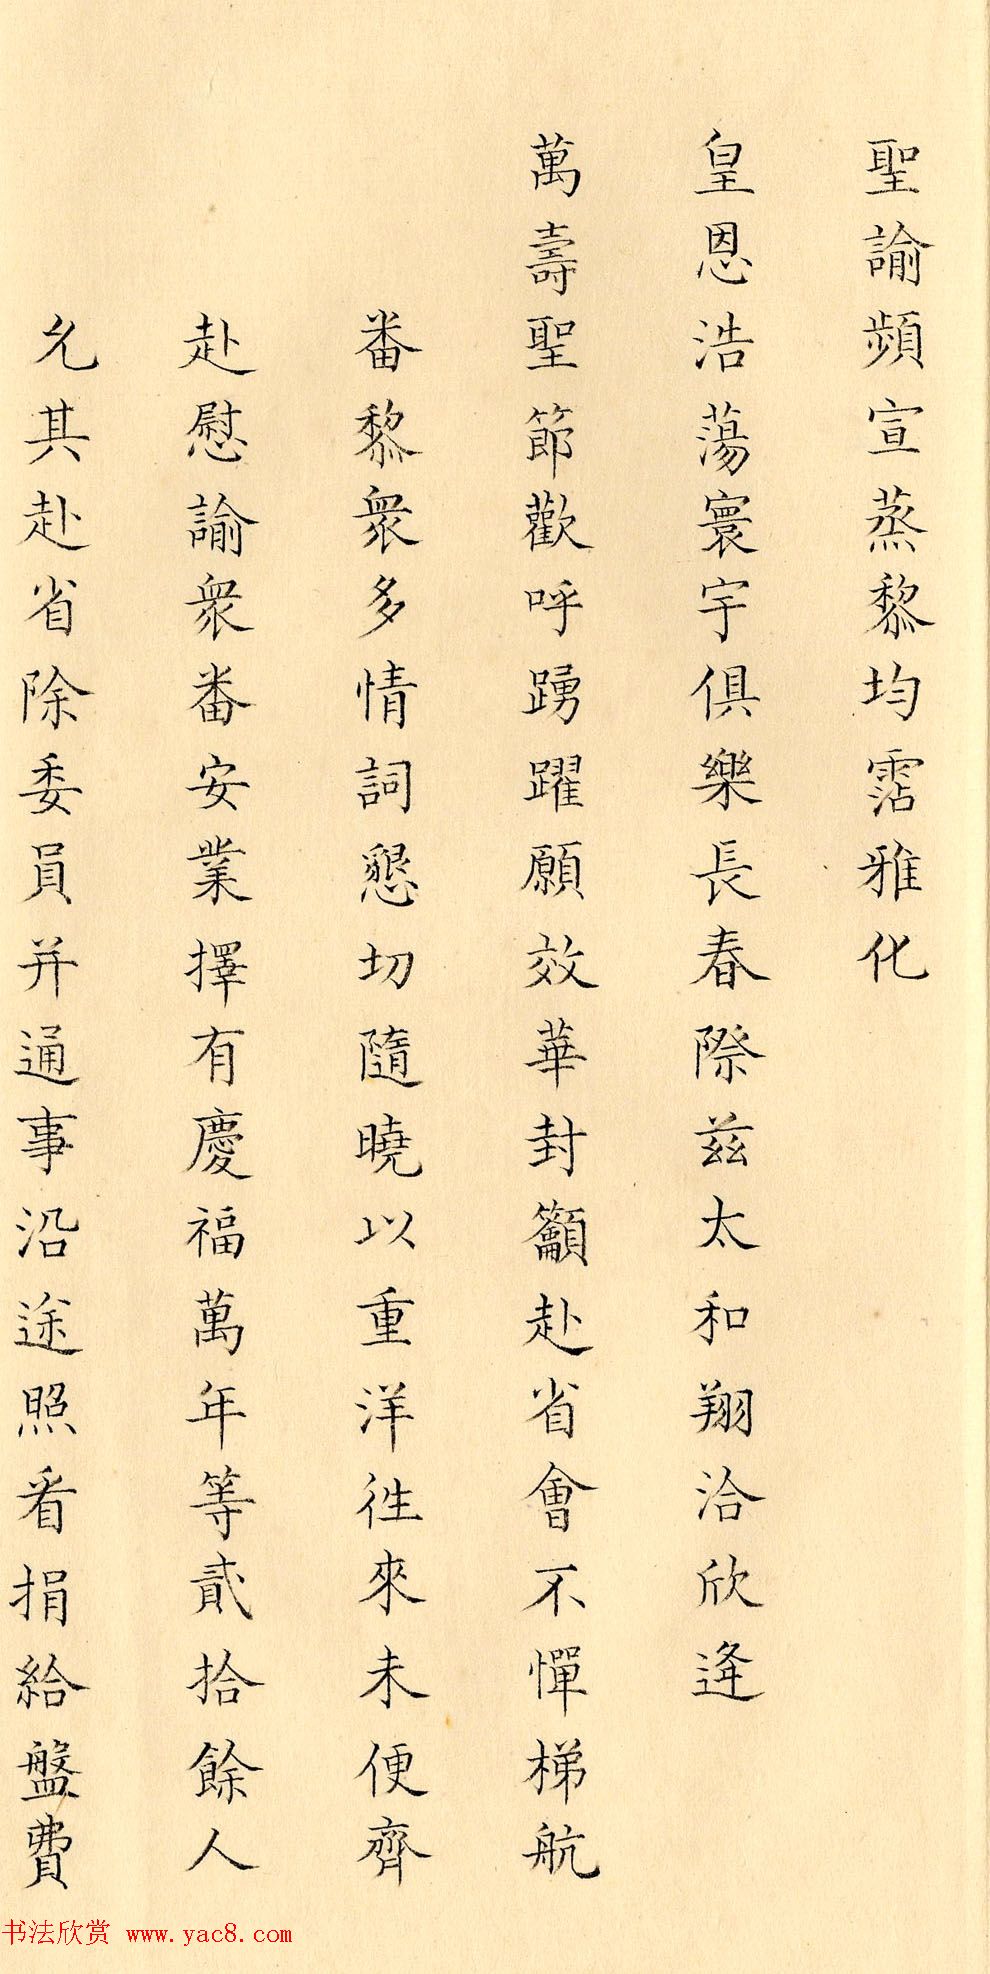 聖諭頻宣蒸黎均霑雅化
皇恩浩蕩寰宇俱樂長春際茲太和翔洽欣逢
萬壽聖節歡呼踴躍願效華封籲赴省會不憚梯航
番黎衆多情詞懇切隨曉以重洋徃來未便齊
赴慰諭衆番安業擇有慶福萬年等貳拾餘人
允其赴省除委員并通事沿途照看捐給盤費
书法欣赏 www.yac8.com